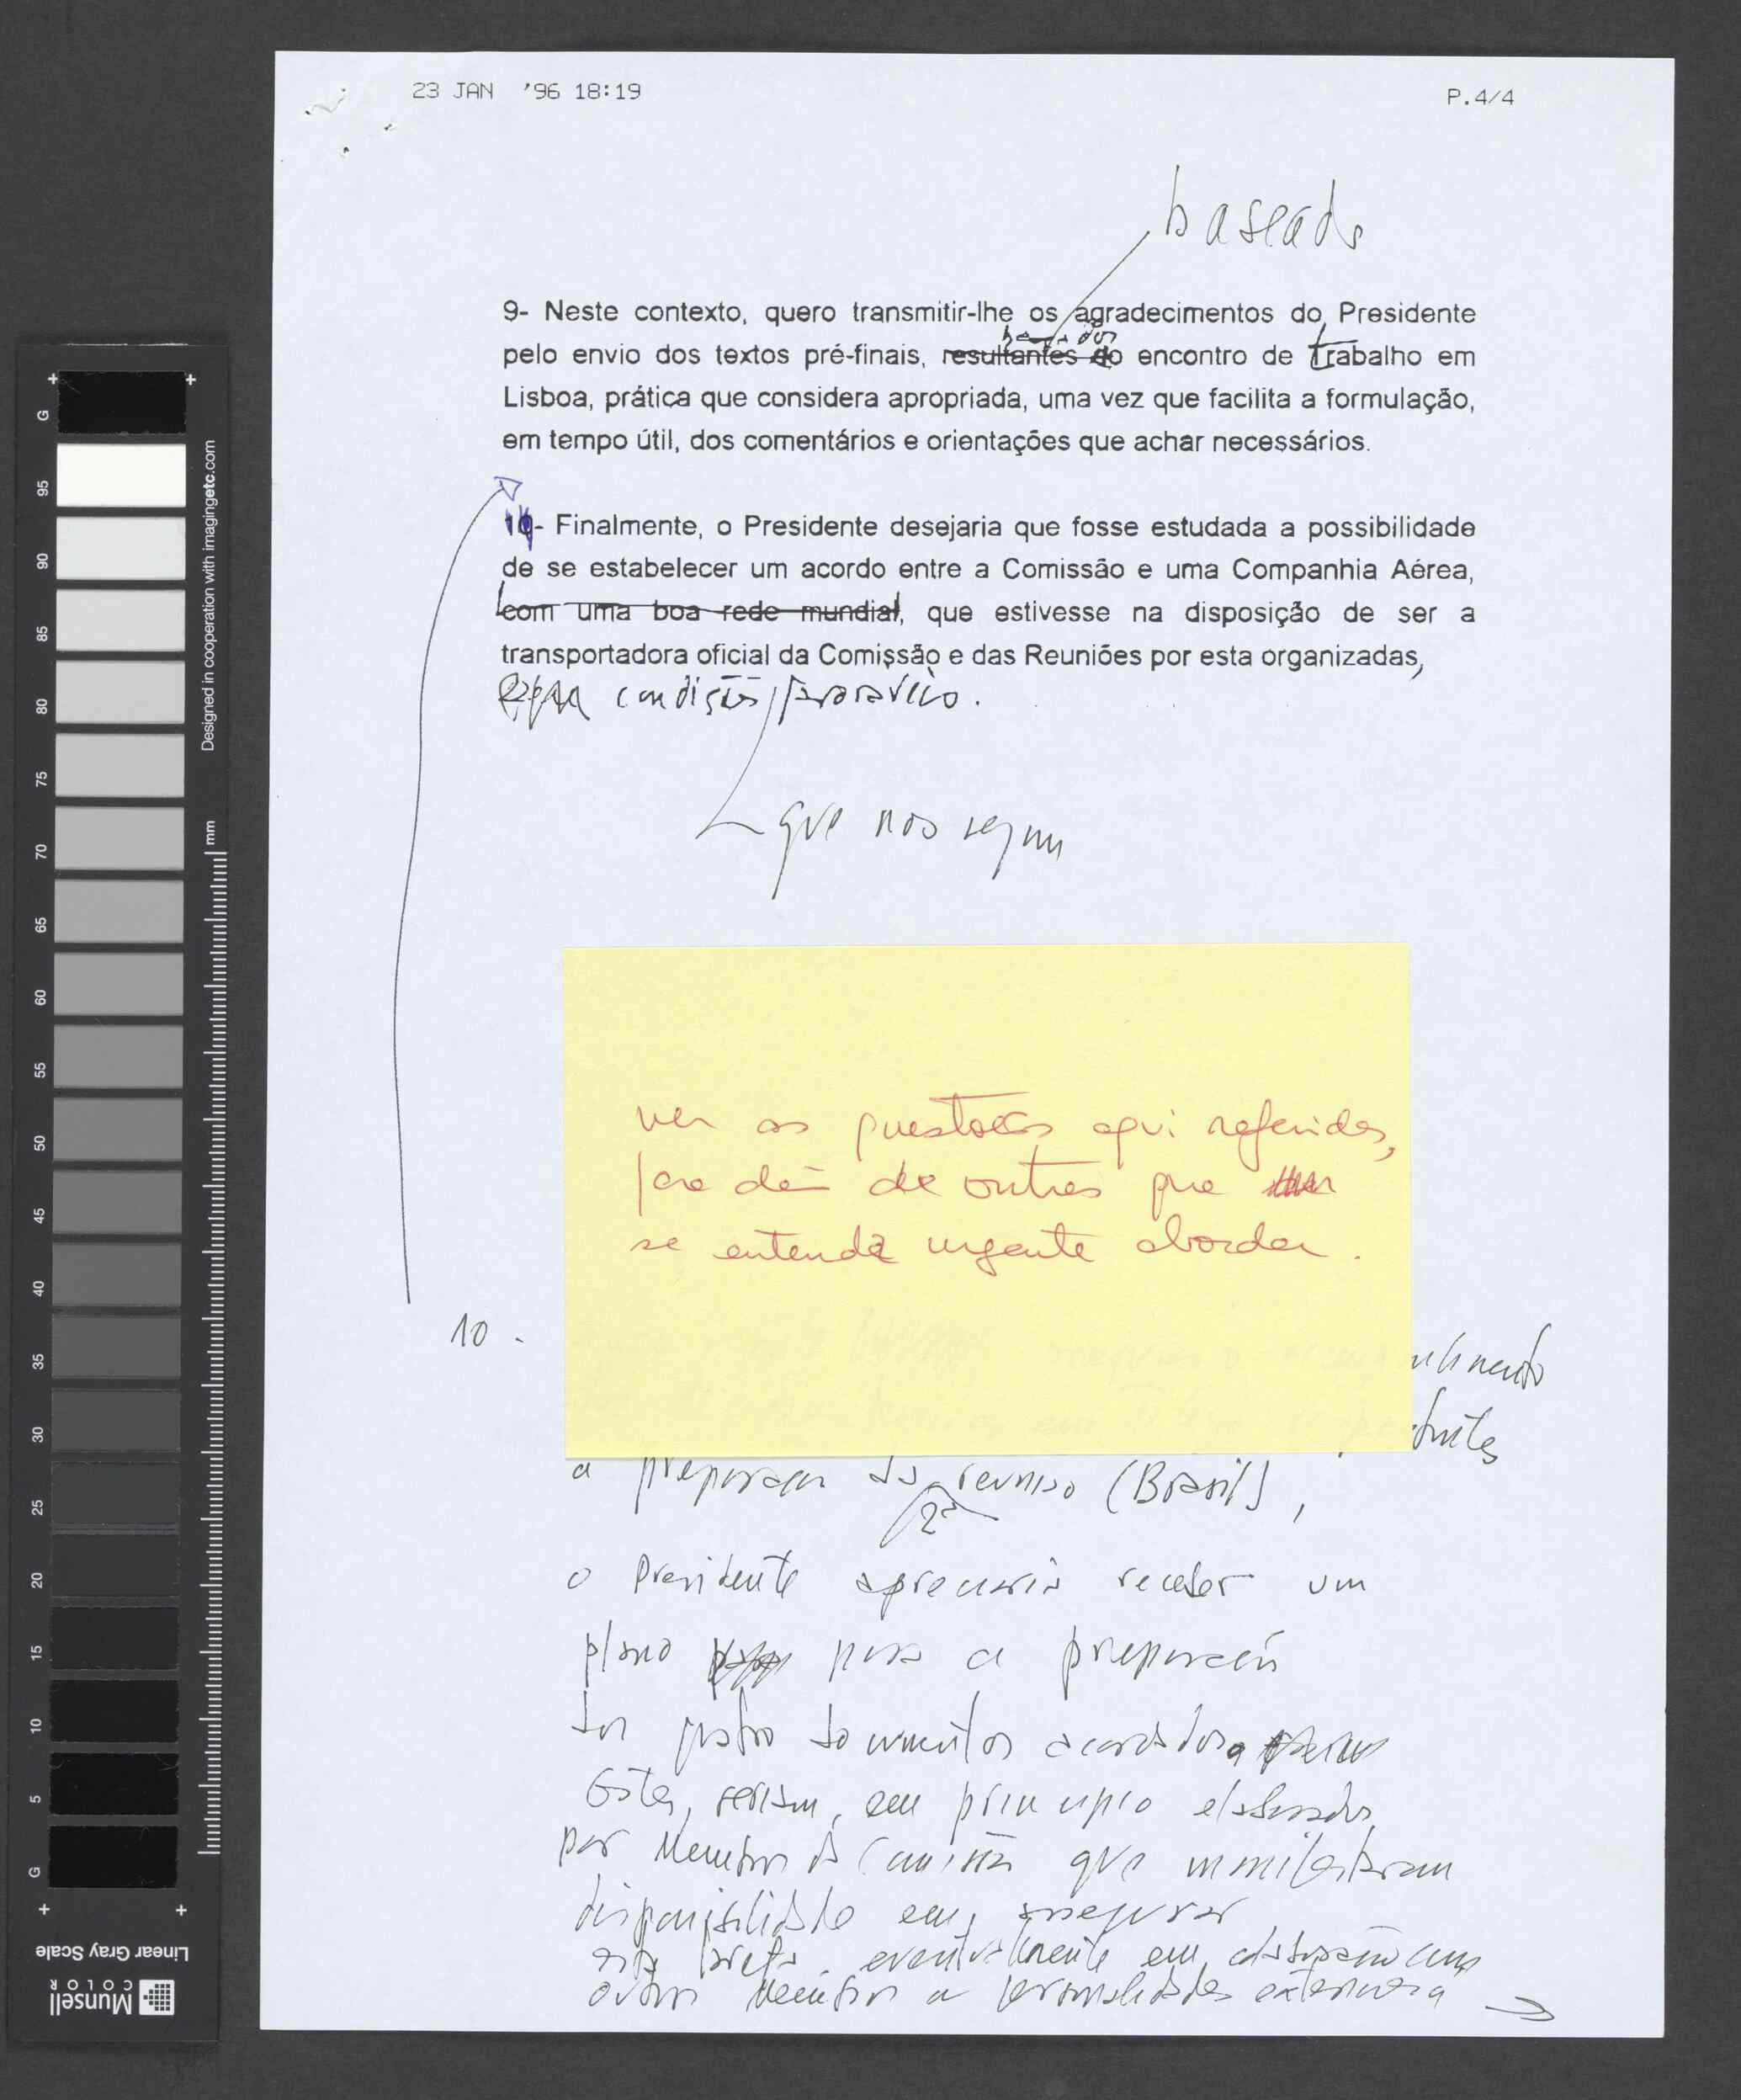 23 JAN '96 18:19
P.4/4
baseado
9- Neste contexto, quero transmitir-lhe os agradecimentos do Presidente
baseados
pelo envio dos textos pré-finais, resultantes do encontro de trabalho em
Lisboa, prática que considera apropriada, uma vez que facilita a formulação,
em tempo útil, dos comentários e orientações que achar necessários.
10- Finalmente, o Presidente desejaria que fosse estudada a possibilidade
de se estabelecer um acordo entre a Comissão e uma Companhia Aérea,
com uma boa rede mundial, que estivesse na disposição de ser a
transportadora oficial da Comissão e das Reuniões por esta organizadas,
condições favoráveis.
que nos
ver as questões aqui referidas,
para além de outras que
se entenda urgente abordar.
10 -
a preparação da reunião (Brasil),
2ª
o Presidente apreciaria receber um
plano para a preparação
dos quatro documentos acordados
Estes, seriam, em princípio elaborados
por Membros da Comissão que manifestaram
disponibilidade em assegurar
esta tarefa, eventualmente em colaboração com
outros Membros e personalidades externas
G
95
90
85
80
75
70
65
60
55
50
45
40
35
30
25
20
15
10
5
G
Designed in cooperation with imagingetc.com
mm
Linear Gray Scale
Munsell
COLOR